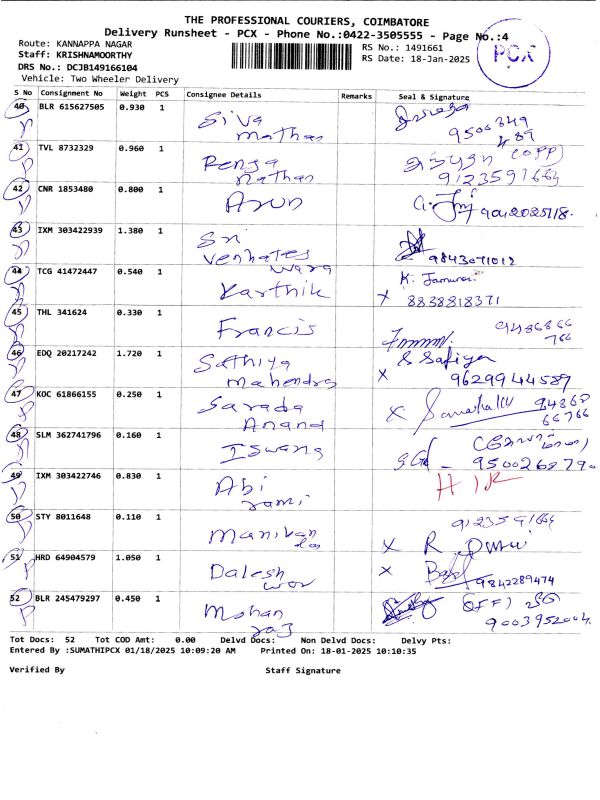 THE PROFESSIONAL COURIERS, COIMBATORE
Delivery Runsheet - PCX - Phone No.:0422-3505555 - Page No.:4
Route: KANNAPPA NAGAR
RS No.: 1491661
Staff: KRISHNAMOORTHY
RS Date: 18-Jan-2025
PCX
DRS No.: DCJB149166104
Vehicle: Two Wheeler Delivery
S No Consignment No Weight PCS Consignee Details Remarks Seal & Signature
40 BLR 615627505 0.930 1 Siva
mathan 9506349
489
41 TVL 8732329 0.960 1 Renga (OPP)
nathan 9123591664
42 CNR 1853480 0.800 1 Arun 9042025118.
43 IXM 303422939 1.380 1 Sri
Venkates 9843071012
wara
44 TCG 41472447 0.540 1 Karthik K. Jamuna
X 8838818371
45 THL 341624 0.330 1 Francis 9486866
766
46 EDQ 20217242 1.720 1 Sathiya S Safiya
mahendra X 9629944589
47 KOC 61866155 0.250 1 Sarada X 94868
Anand 66766
48 SLM 362741796 0.160 1 Iswang
950026879
49 IXM 303422746 0.830 1 Abi
rami
50 STY 8011648 0.110 1 Manikan 9123591664
das X R.
51 HRD 64904579 1.050 1 Dalesh X
wor 9842289474
52 BLR 245479297 0.450 1 Mohan (OFF)
raj 9003952004.
Tot Docs: 52 Tot COD Amt: 0.00 Delvd Docs: Non Delvd Docs: Delvy Pts:
Entered By :SUMATHIPCX 01/18/2025 10:09:20 AM Printed On: 18-01-2025 10:10:35
Verified By Staff Signature